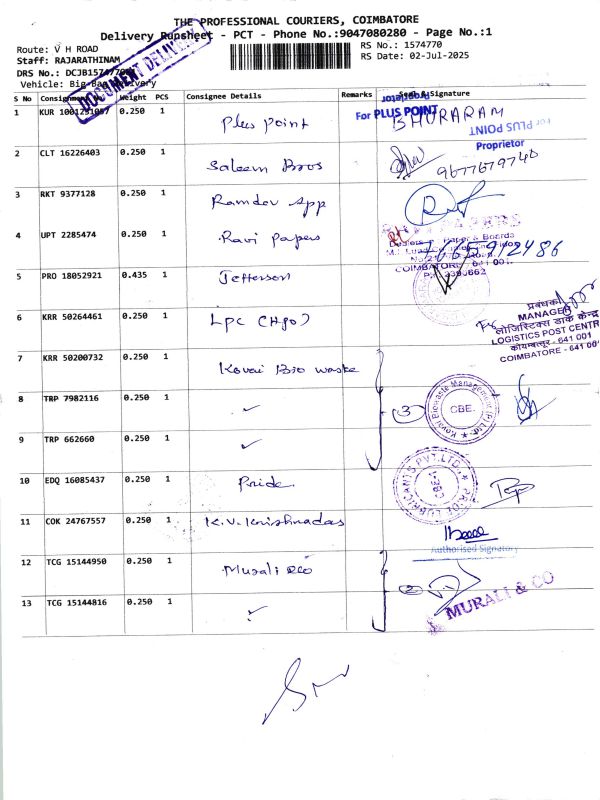 THE PROFESSIONAL COURIERS, COIMBATORE
Delivery Runsheet - PCT - Phone No.:9047080280 - Page No.:1
Route: V H ROAD
RS No.: 1574770
Staff: RAJARATHINAM
RS Date: 02-Jul-2025
DRS No.:
DOCUMENT DELIVERY
Vehicle: Big-Bag Delivery
S No Consignment Weight PCS Consignee Details Remarks Seal & Signature
Proprietor
For PLUS POINT
1 KUR 0.250 1 Plus Point BHURARAM
For PLUS POINT
Proprietor
2 CLT 16226403 0.250 1 Saleem Bros
3 RKT 9377128 0.250 1 Ramdev App
4 UPT 2285474 0.250 1 Ravi Papers
COIMBATORE - 641 001
5 PRO 18052921 0.435 1 Jefferson
6 KRR 50264461 0.250 1 LPC (HPO)
प्रबंधक
MANAGER
लोजिस्टिक्स डाक केन्द्र
LOGISTICS POST CENTR
कोयम्बत्तूर - 641 001
COIMBATORE - 641 001
7 KRR 50200732 0.250 1 Kovai Bio waste
8 TRP 7982116 0.250 1 ✓ 3
Kovai Biowaste Management (P) Ltd.
CBE.
9 TRP 662660 0.250 1 ✓
10 EDQ 16085437 0.250 1 Pride
LUBRICANTS PVT. LTD.
CBE-1
11 COK 24767557 0.250 1 K.V. Krishnadas
Authorised Signatory
12 TCG 15144950 0.250 1 Murali &co 2
13 TCG 15144816 0.250 1 ✓
MURALI & CO